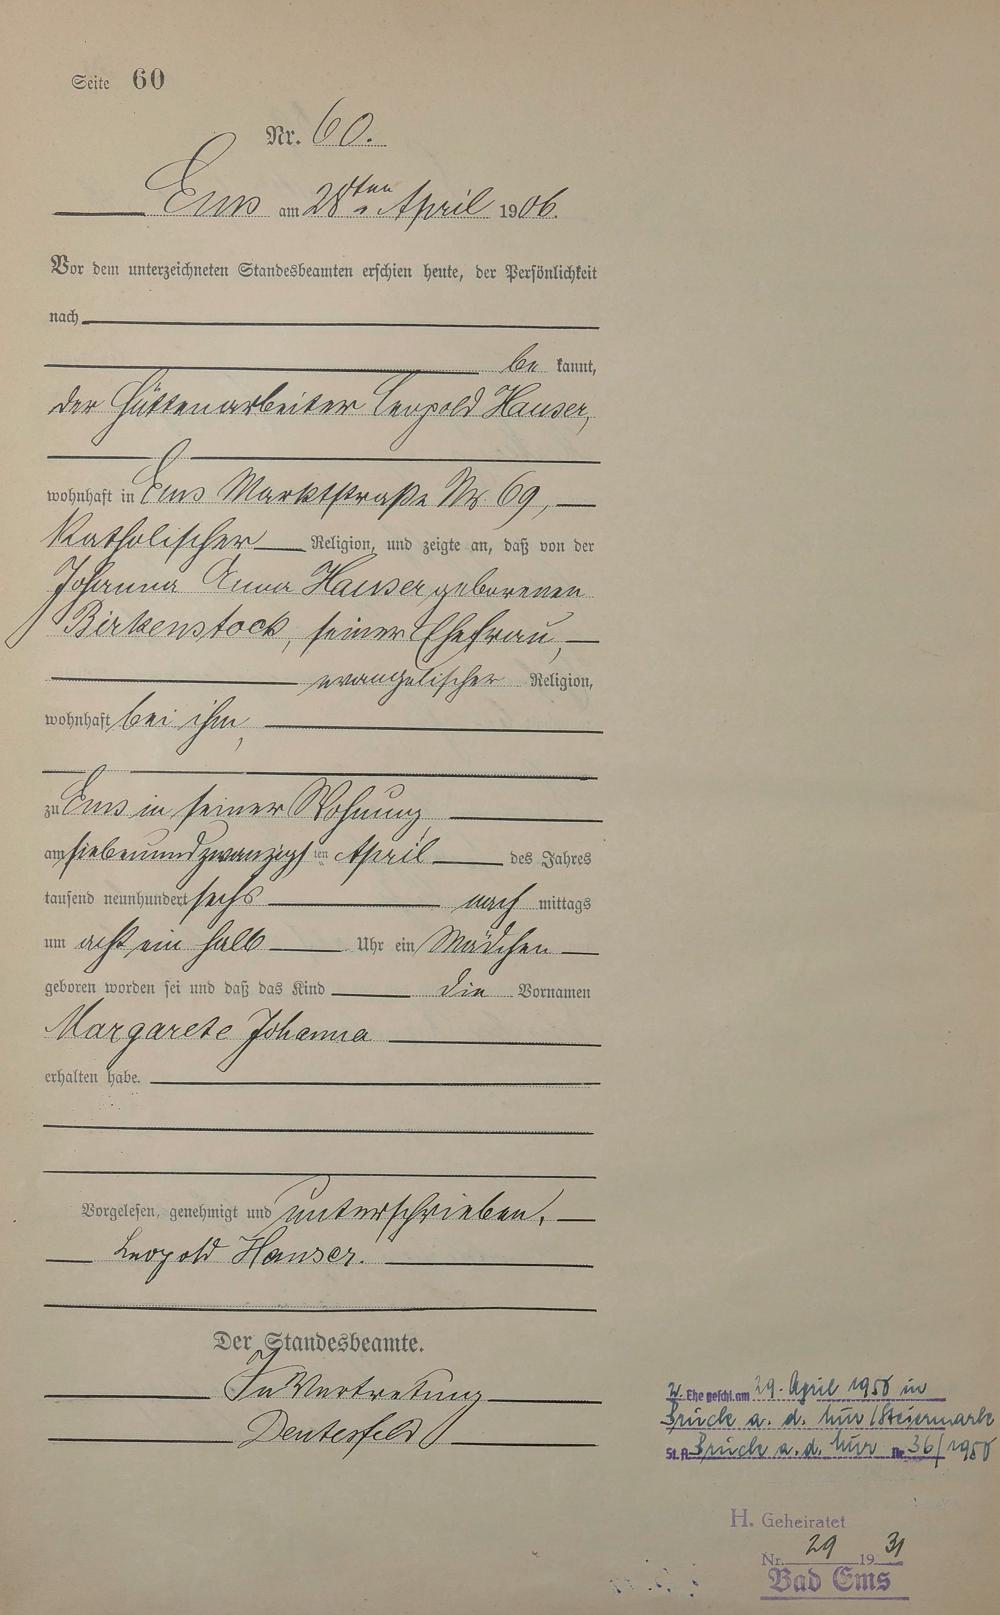 Seite 60
Nr. 60.
Ems am 28ten April 1906.
Vor dem unterzeichneten Standesbeamten erschien heute, der Persönlichkeit
nach
be kannt,
der Hüttenarbeiter Leopold Hauser,
wohnhaft in Ems Marktstraße Nr. 69,
katholischer Religion, und zeigte an, daß von der
Johanna Anna Hauser geborenen
Birkenstock, seiner Ehefrau,
evangelischer Religion,
wohnhaft bei ihm,
zu Ems in seiner Wohnung
am siebenundzwanzigsten April des Jahres
tausend neunhundert sechs nach mittags
um acht ein halb Uhr ein Mädchen
geboren worden sei und daß das Kind die Vornamen
Margarete Johanna
erhalten habe.
Vorgelesen, genehmigt und unterschrieben.
Leopold Hauser.
Der Standesbeamte.
In Vertretung
2. Ehe geschl. am 29. April 1950 in
Bruck a. d. Mur/Steiermark
St. A. Bruck a. d. Mur Nr. 36/1950
H. Geheiratet
Nr. 29 1931
Bad Ems